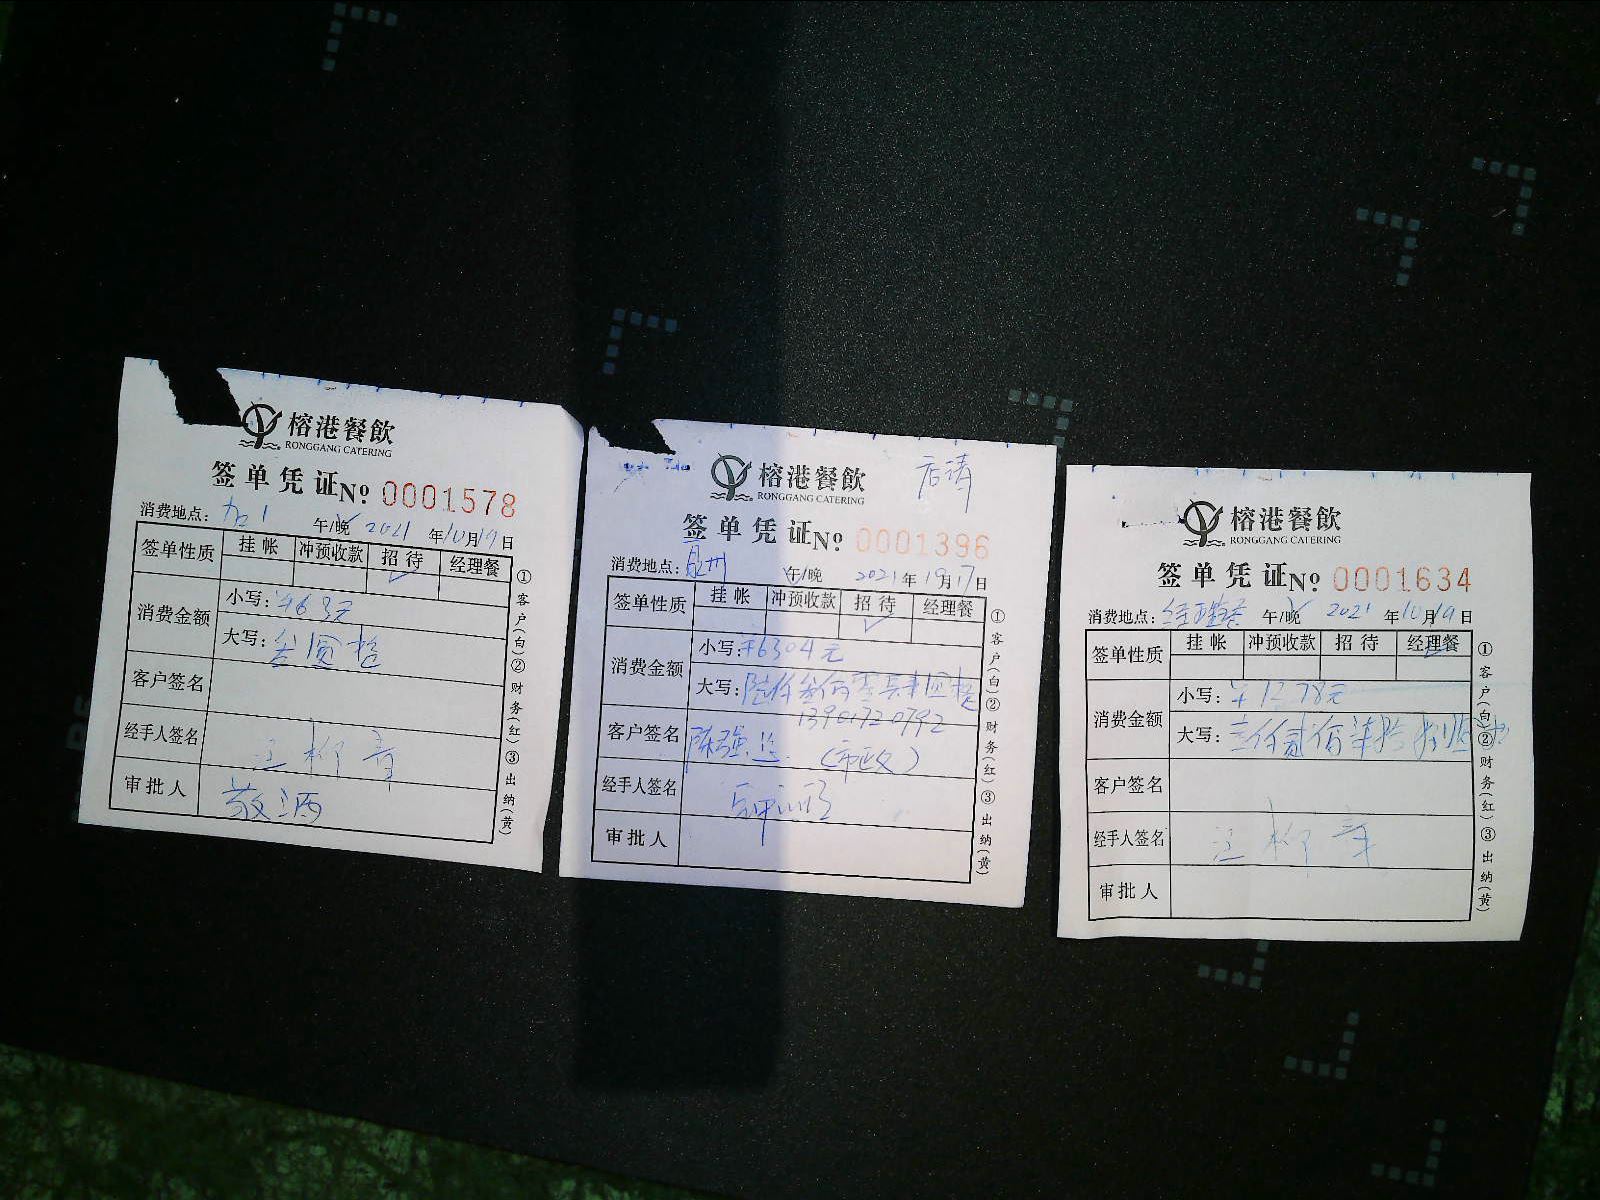 榕港餐飲
RONGGANG CATERING
签单凭证№ 0001578
消费地点：加1 午/晚 2021年10月19日
签单性质 挂帐 冲预收款 招待 经理餐
消费金额
小写：¥463元
大写： 圆整
客户签名
经手人签名 江柳章
审批人 敬酒
①客户(白)②财务(红)③出纳(黄)
后请
榕港餐飲
RONGGANG CATERING
签单凭证№ 0001396
消费地点：泉州 午/晚 2021年10月17日
签单性质 挂帐 冲预收款 招待 经理餐
消费金额
小写：¥6304元
大写： 圆整
13901720792
客户签名 陈强总 (市政)
经手人签名
审批人
①客户(白)②财务(红)③出纳(黄)
榕港餐飲
RONGGANG CATERING
签单凭证№ 0001634
消费地点：经理餐 午/晚 2021年10月19日
签单性质 挂帐 冲预收款 招待 经理餐
消费金额
小写：¥1278元
大写：壹仟贰佰柒拾捌圆
客户签名
经手人签名 江柳章
审批人
①客户(白)②财务(红)③出纳(黄)